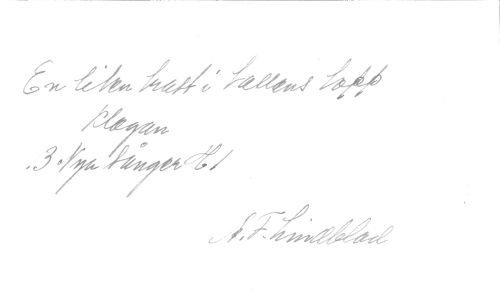 En liten trast i tallens topp
Klagan
3 Nya Sånger H1
A. F. Lindblad